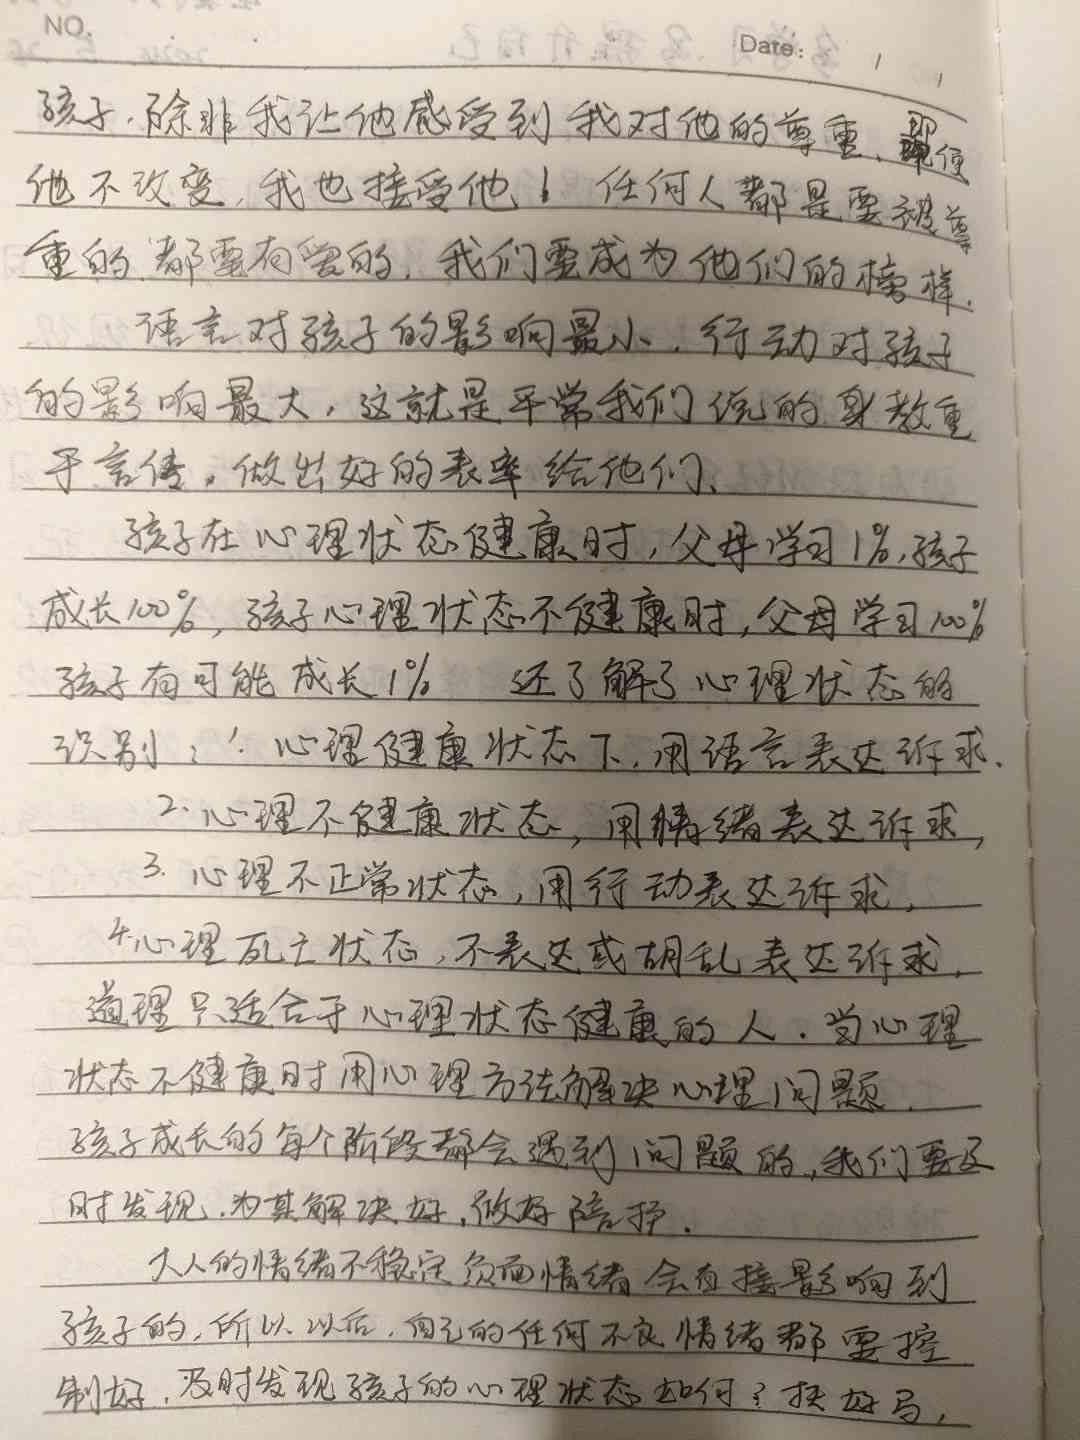 NO.
Date:
孩子，除非我让他感受到我对他的尊重、即便
他不改变，我也接受他！任何人都是要被尊
重的，都要有爱的，我们要成为他们的榜样.
语言对孩子的影响最小，行动对孩子
的影响最大，这就是平常我们说的身教重
于言传，做出好的表率给他们、
孩子在心理状态健康时，父母学习1%，孩子
成长100%，孩子心理状态不健康时，父母学习100%
孩子有可能成长1% 还了解了心理状态的
识别：1. 心理健康状态下，用语言表达诉求、
2. 心理不健康状态，用情绪表达诉求，
3. 心理不正常状态，用行动表达诉求，
4. 心理死亡状态，不表达或胡乱表达诉求，
道理只适合于心理状态健康的人．当心理
状态不健康时用心理方法解决心理问题．
孩子成长的每个阶段都会遇到问题的，我们要及
时发现，为其解决好，做好陪护．
大人的情绪不稳定负面情绪会直接影响到
孩子的，所以以后，自己的任何不良情绪都要控
制好，及时发现孩子的心理状态如何？扶好